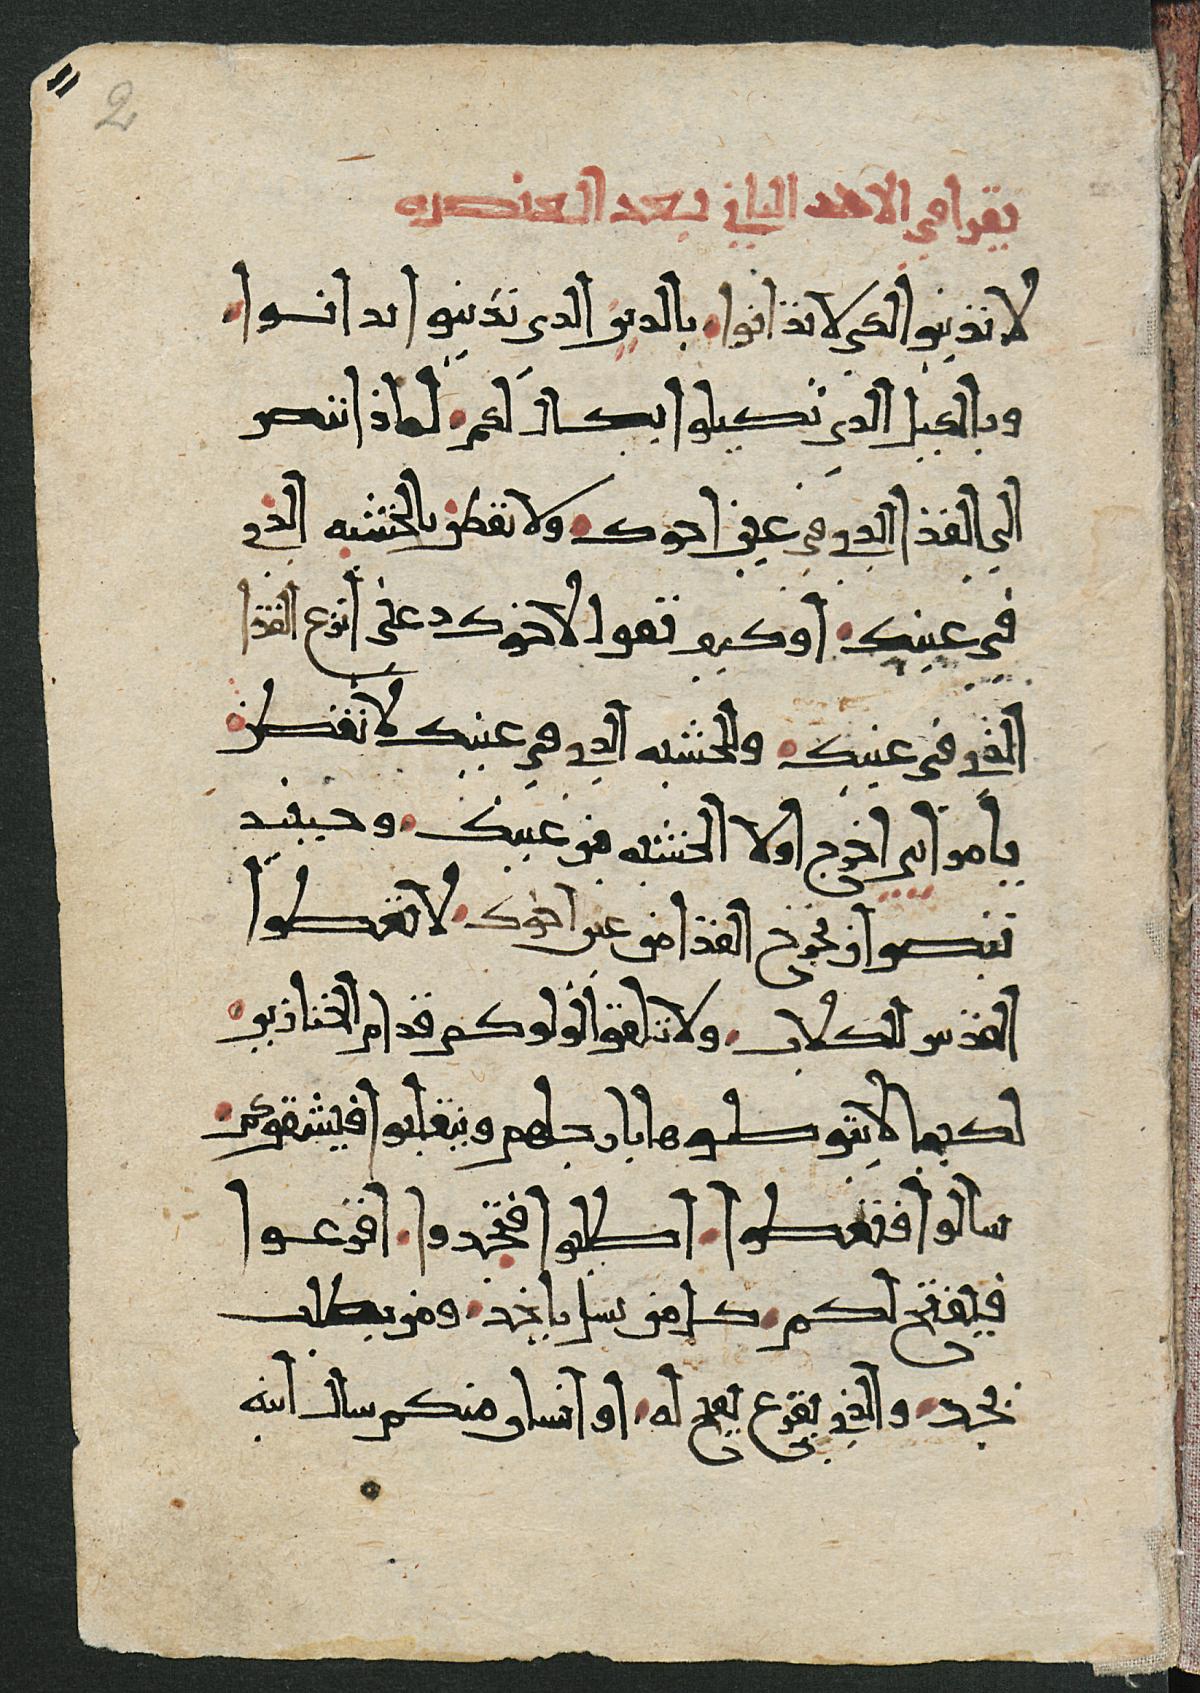 2
يقرا في الاحد الثاني بعد العنصره
لا تدينوا لكي لا تدانوا. بالدين الدي تدينوا تدانوا.
وبالكيل الدي تكيلوا يكال لكم. لماذا تبصر
الي القذا الدي في عين اخوك. ولا تفطن بالخشبه الذي
في عينك. او كيف تقول لاخوك دعني انزع القذا
الذي في عينك. والخشبه الذي في عينك لا تفطن
يا مرايي اخرج اولا الخشبه من عينك. وحينيد
تبصر ان تخرج القذا من عين اخوك. لا تعطوا
القدس للكلاب. ولا تلقوا لولوكم قدام الخنازير
لكيما لا يتوطوها بارجلهم وينقلبوا فيشقوكم.
سالوا فتعطوا. اطلبوا فتجدوا. اقرعوا
فيفتح لكم. كل من يسل ياخد. ومن يطلب
يجد. والذي يقرع يفتح له. او انسان منكم ساله ابنه